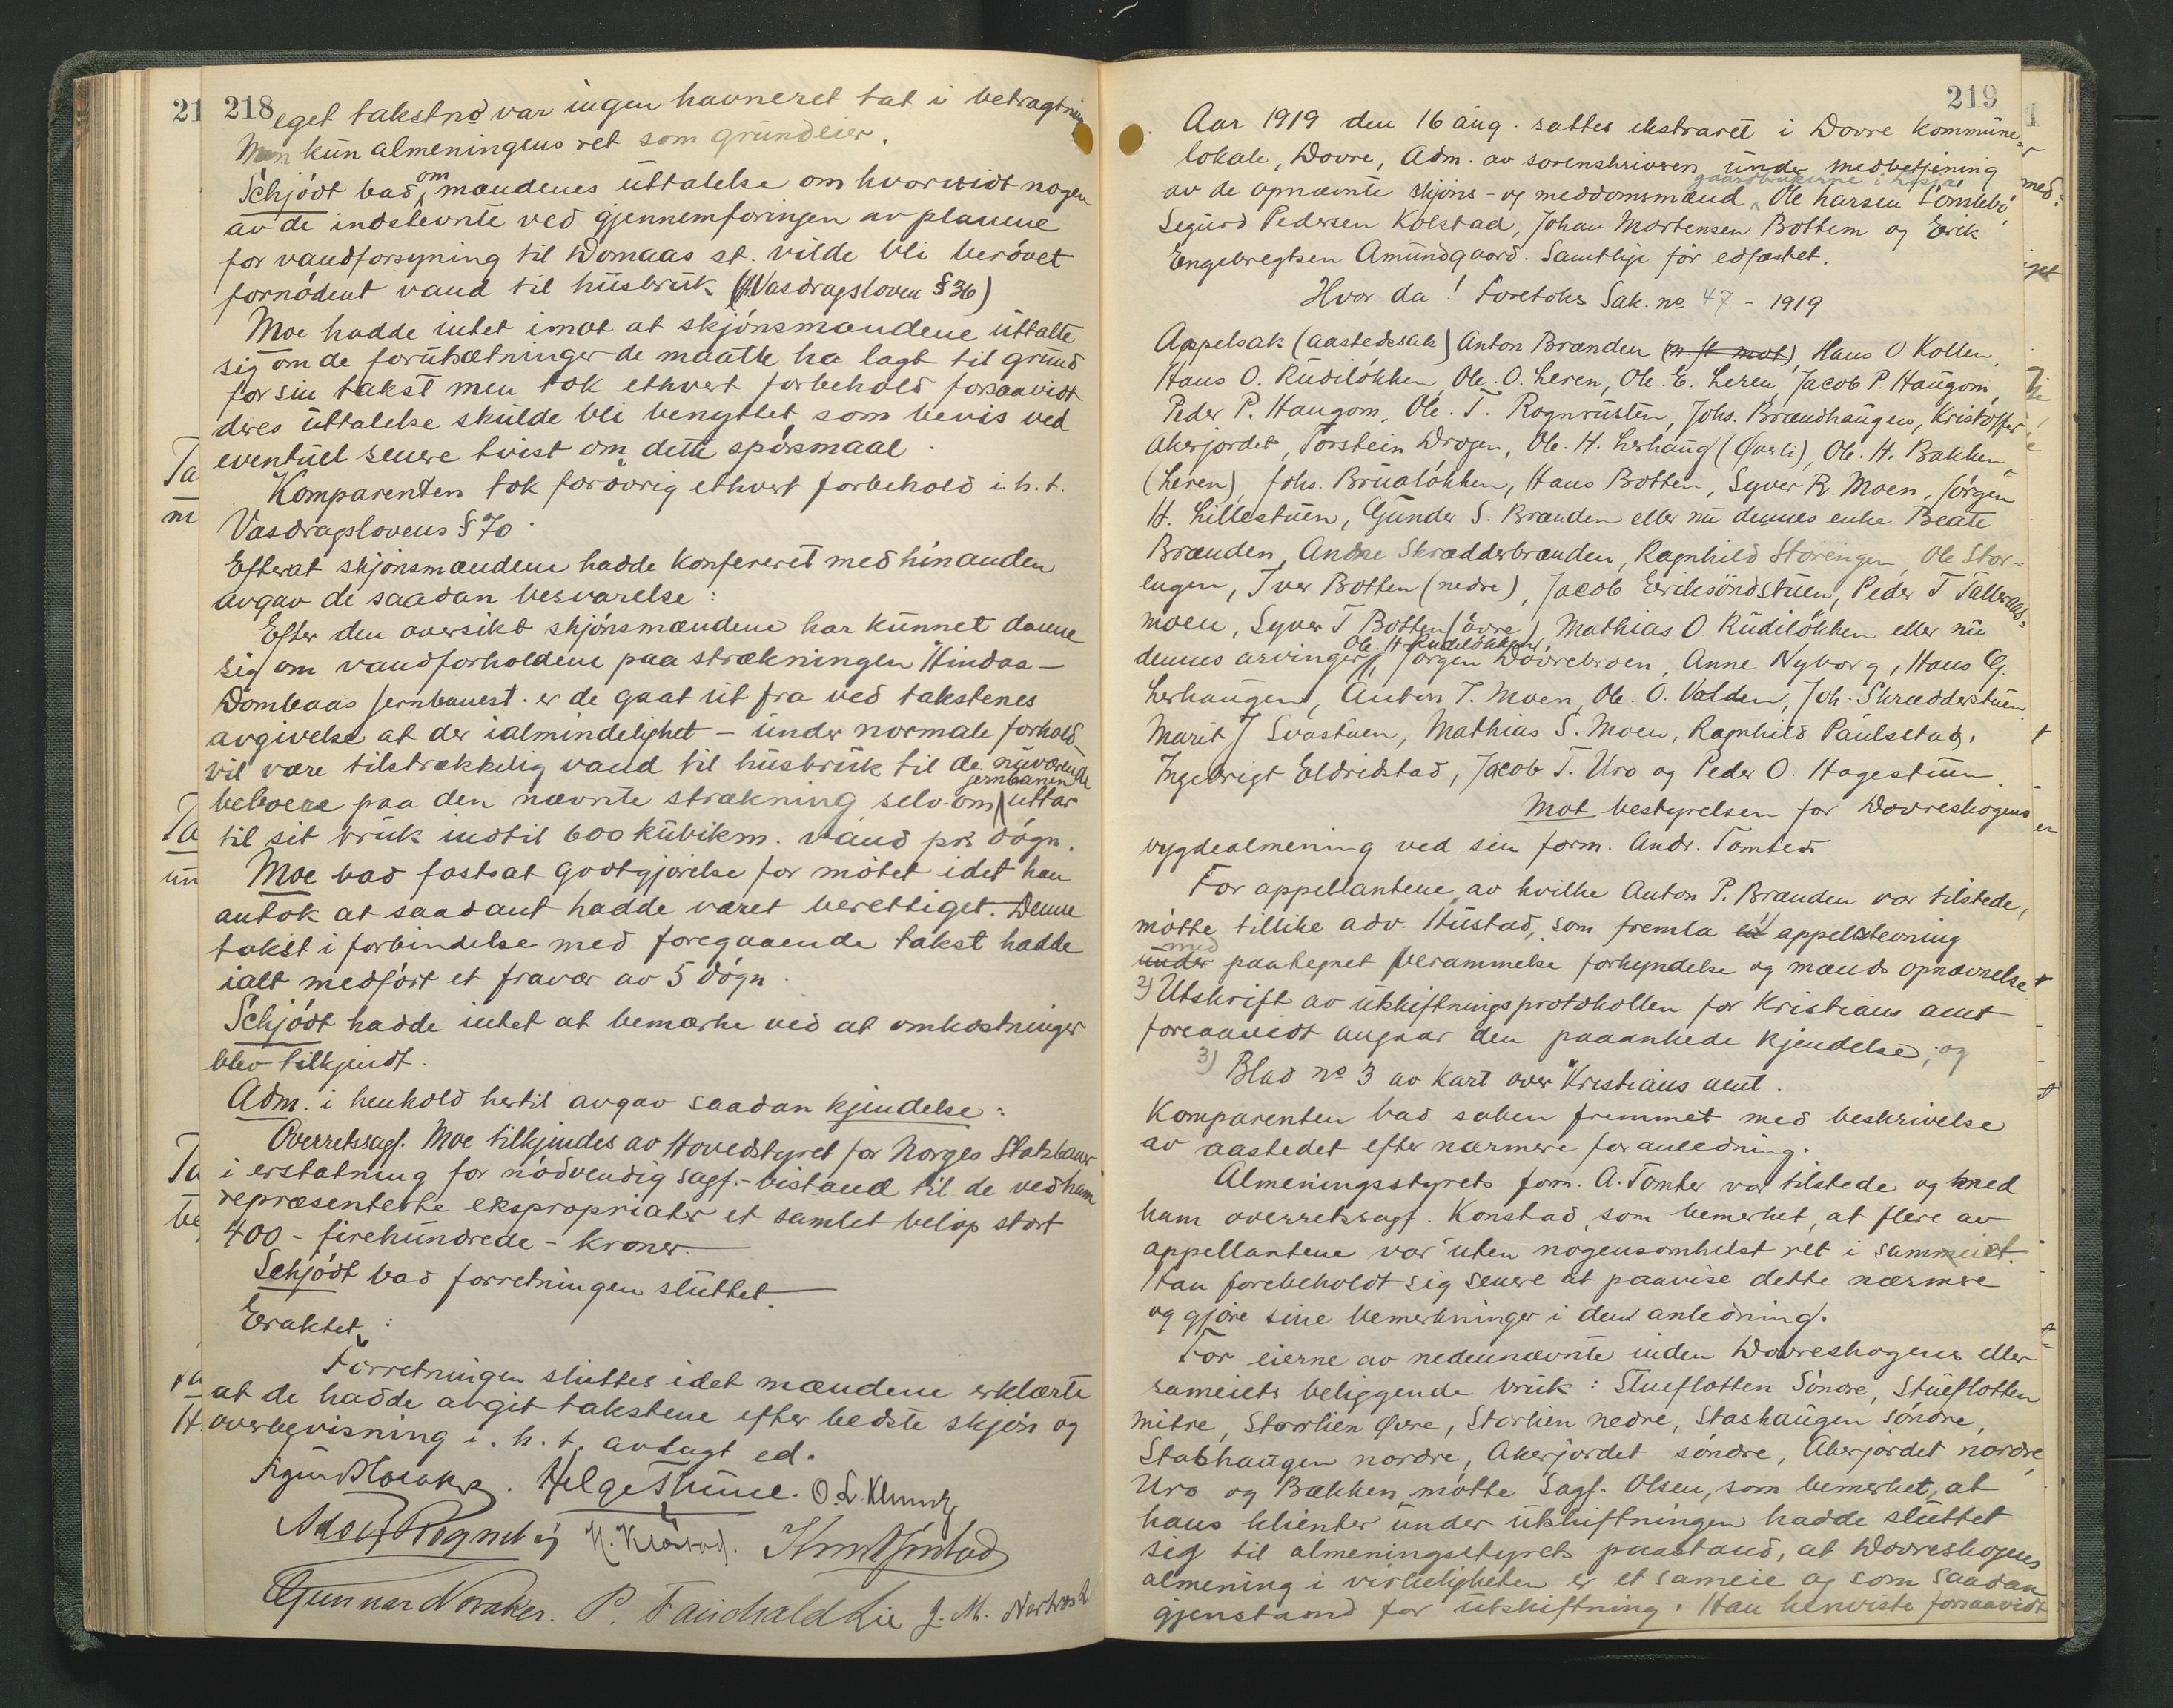 218
eget takstno var ingen havneret tat i betragtning
Men kun almeningens ret som grundeier.
Schjödt bad om mændenes uttalelse om hvorvidt nogen
av de indstevnte ved gjennemföringen av planene
for vandforsyning til Domaas st. vilde bli berövet
fornödent vand til husbruk (Vasdragsloven § 36)
Moe hadde intet imot at skjönsmændene uttalte
sig om de forutsætninger de maatte ha lagt til grund
for sin takst men tok ethvert forbehold forsaavidt
deres uttalelse skulde bli benyttet som bevis ved
eventuel senere tvist om dette spörsmaal.
Komparenten tok forövrig ethvert forbehold i. h. t.
Vasdragslovens § 70.
Efterat skjönsmændene hadde konfereret med hinanden
avgav de saadan besvarelse:
Efter den oversikt skjönsmændene har kunnet danne
sig om vandforholdene paa strækningen Hindaa-
Dombaas Jernbanest. er de gaat ut fra ved takstenes
avgivelse at der ialmindelighet - under normale forhold -
vil være tilstrækkelig vand til husbruk til de nuværende
beboere paa den nævnte strækning selv om jernbanen uttar
til sit bruk indtil 600 kubikm. vand pr. dögn.
Moe bad fastsat godtgjörelse for mötet idet han
antok at saadant hadde været berettiget. Denne
takst i forbindelse med foregaaende takst hadde
ialt medfört et fravær av 5 dögn.
Schjödt hadde intet at bemærke ved at omkostninger
blev tilkjendt.
Adm. i henhold hertil avgav saadan kjendelse:
Overretssagf. Moe tilkjendes av Hovedstyret for Norges Statsbaner
i erstatning for nödvendig sagf.-bistand til de ved ham
repræsenterte ekspropriater et samlet belöp stort
400 - firehundrede - kroner.
Schjödt bad forretningen sluttet.
Eraktet:
Forretningen sluttes idet mændene erklærte
at de hadde avgit takstene efter bedste skjön og
overbevisning i. h. t. avlagt ed.
Helge Thune. O. L. Klund
Gunnar Noraker. P. Fairchald Lie J. M.
219
Aar 1919 den 16 aug. sattes ekstraret i Dovre kommune-
lokale, Dovre, Adm. av sorenskriveren under medbetjening
av de opnævnte skjöns- og meddomsmænd, gaardbrukerne i Lesja Ole Larsen Sönslebö,
Sigurd Pedersen Kolstad, Johan Mortensen Bottem og Erik
Engebregtsen Amundgaard. Samtlige för edfæstet.
Hvor da! Foretokes Sak. no 47 - 1919
Appelsak (aastedssak) Anton Brænden (m. fl. mot), Hans O Kollen,
Hans O. Rudilökken, Ole. O. Leren, Ole. E. Leren, Jacob P. Haugom,
Peder P. Haugom, Ole. T. Rognrusten, Johs. Brændhaugen, Kristoffer
Akerjordet, Torstein Drogen, Ole. H. Lerhaug (Överli), Ole. H. Bakken,
(Leren), Johs. Brualökken, Hans Botten, Syver R. Moen, Jörgen
H. Lillestuen, Gunder S. Brænden eller nu dennes enke Beate
Brænden, Andne Skrædderbrænden, Ragnhild Storengen, Ole Stor-
engen, Iver Botten (nedre), Jacob Eriksöndstuen, Peder T Talleraas-
moen, Syver T Botten (övre), Mathias O. Rudilökken eller nu
dennes arvinger, Ole. H. Rudilökken, Jörgen Dovrebroen, Anne Nyborg, Hans G.
Lerhaugen, Anton T. Moen, Ole. O. Valden, Joh. Skrædderstuen,
Marit J. Svastuen, Mathias S. Moen, Ragnhild Paulsstad,
Ingebrigt Eldridstad, Jacob T. Uro og Peder O. Hagestuen
Mot bestyrelsen for Dovreskogens
bygdealmening ved sin form. Andr. Tomter.
For appellantene, av hvilke Anton P. Brænden var tilstede,
mötte tillike adv. Hustad, som fremla 1) appellstevning
med paategnet berammelse forkyndelse og mænds opnævnelse.
2) Utskrift av utskiftningsprotokollen for Kristians amt
forsaavidt angaar den paaankede kjendelse; og
3) Blad no 3 av kart over Kristians amt.
Komparenten bad saken fremmet med beskrivelse
av aastedet efter nærmere foranledning.
Almeningsstyrets form. A. Tomter var tilstede og med
ham overretssagf. Konstad, som bemerket, at flere av
appellantene var uten nogensomhelst ret i sammeiet.
Han forebeholdt sig senere at paavise dette nærmere
og gjöre sine bemerkninger i den anledning.
For eierne av nedennævnte inden Dovreskogens eller
sameiets beliggende bruk: Stueflotten Söndre, Stueflotten
mitre, Storlien Övre, Storlien nedre, Stashaugen söndre,
Stabhaugen nordre, Akerjordet söndre, Akerjordet nordre,
Uro og Bækken mötte Sagf. Olsen, som bemerket, at
hans klienter under utskiftningen hadde sluttet
seg til almeningsstyrets paastand, at Dovreskogens
almening i virkeligheten er et sameie og som saadan
gjenstand for utskiftning. Han henviste forsaavidt